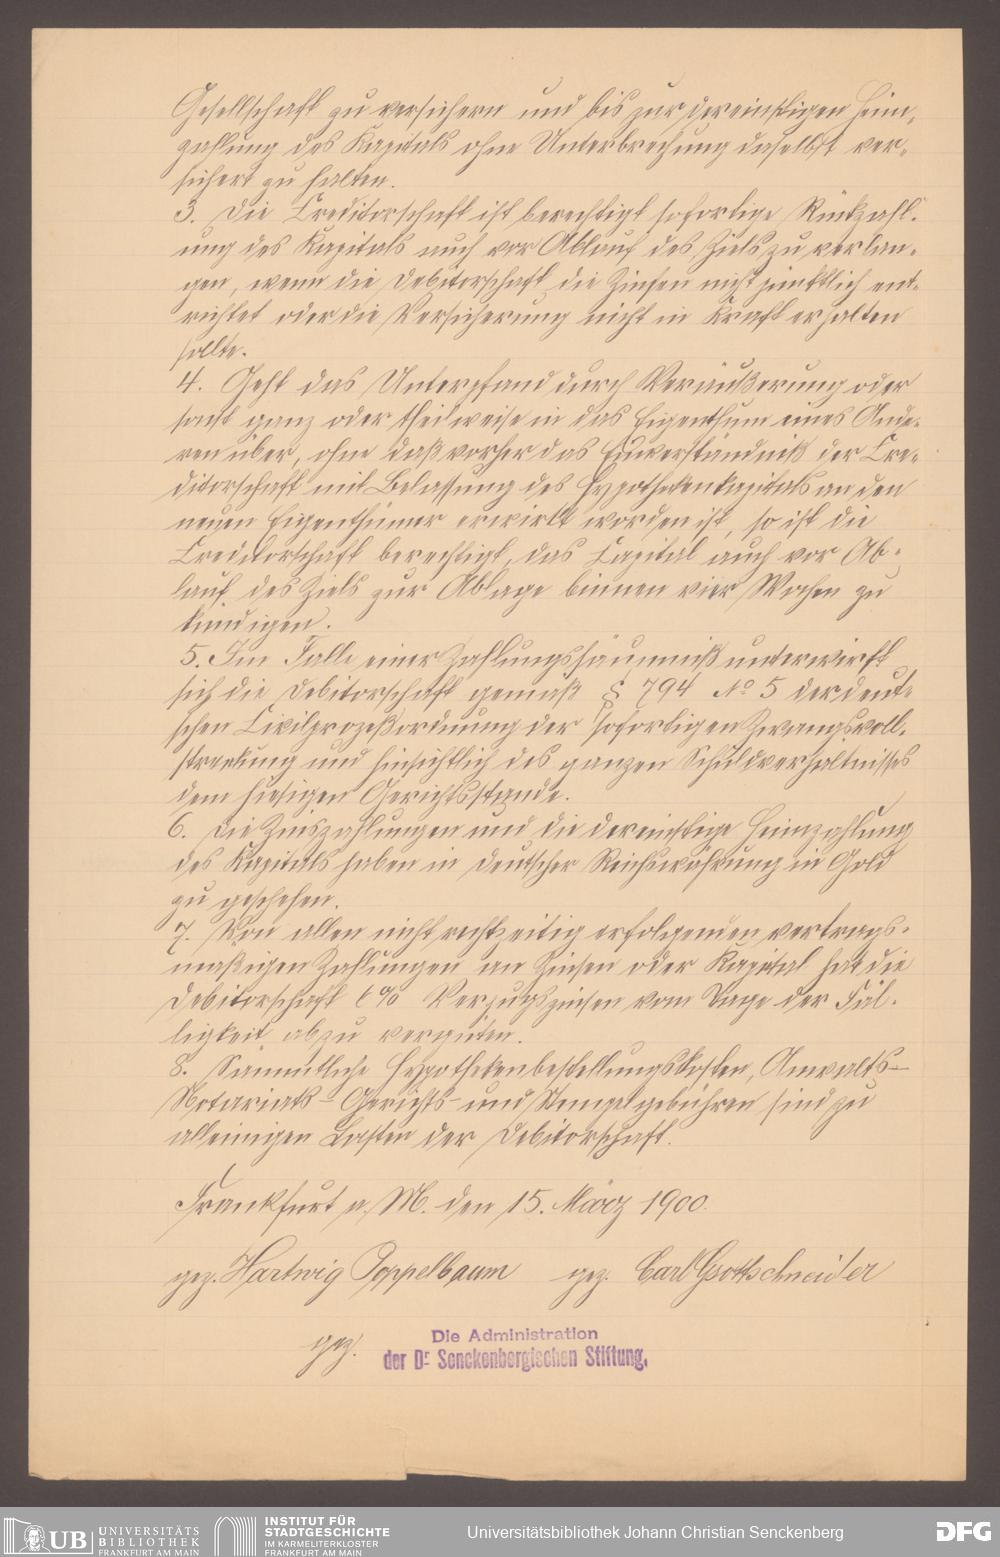 Gesellschaft zu versichern und bis zur dereinstigen Heim-
zahlung des Kapitals ohne Unterbrechung daselbst ver-
sichert zu halten.
3. Die Creditorschaft ist berechtigt sofortige Rückzahl-
ung des Kapitals auch vor Ablauf des Ziels zu verlan-
gen, wenn die Debitorschaft die Zinsen nicht pünktlich ent-
richtet oder die Versicherung nicht in Kraft erhalten
sollte.
4. Geht das Unterpfand durch Veräußerung oder
sonst ganz oder theilweise in das Eigenthum eines Ande-
ren über, ohne daß vorher das Einverständniß der Cre-
ditorschaft mit Belassung des Hypothekenkapitals an den
neuen Eigenthümer erwirkt worden ist, so ist die
Creditorschaft berechtigt, das Capital auch vor Ab-
lauf des Ziels zur Ablage binnen vier Wochen zu
kündigen.
5. Im Falle einer Zahlungssäumniß unterwirft
sich die Debitorschaft gemäß § 794 No 5 der deut-
schen Civilprozeßordnung der sofortigen Zwangsvoll-
streckung und hinsichtlich des ganzen Schuldverhältnisses
dem hiesigen Gerichtsstande.
6. Die Zinszahlungen und die dereinstige Heimzahlung
des Kapitals haben in deutscher Reichswährung in Gold
zu geschehen.
7. Von allen nicht rechtzeitig erfolgenden vertrags-
mäßigen Zahlungen an Zinsen oder Kapital hat die
Debitorschaft 6% Verzugszinsen vom Tage der Fäl-
ligkeit ab zu vergüten.
8. Sämmtliche Hypothekenbestellungskosten, Anwalts-
Notariats- Gerichts- und Stempelgebühren sind zu
alleinigen Lasten der Debitorschaft.
Frankfurt a. M. den 15. März 1900.
gez. Hartwig Poppelbaum gez. Carl Grottschneider
gez. Die Administration
der Dr. Senckenbergischen Stiftung.
UB UNIVERSITÄTS
BIBLIOTHEK
FRANKFURT AM MAIN
INSTITUT FÜR
STADTGESCHICHTE
IM KARMELITERKLOSTER
FRANKFURT AM MAIN
Universitätsbibliothek Johann Christian Senckenberg
DFG